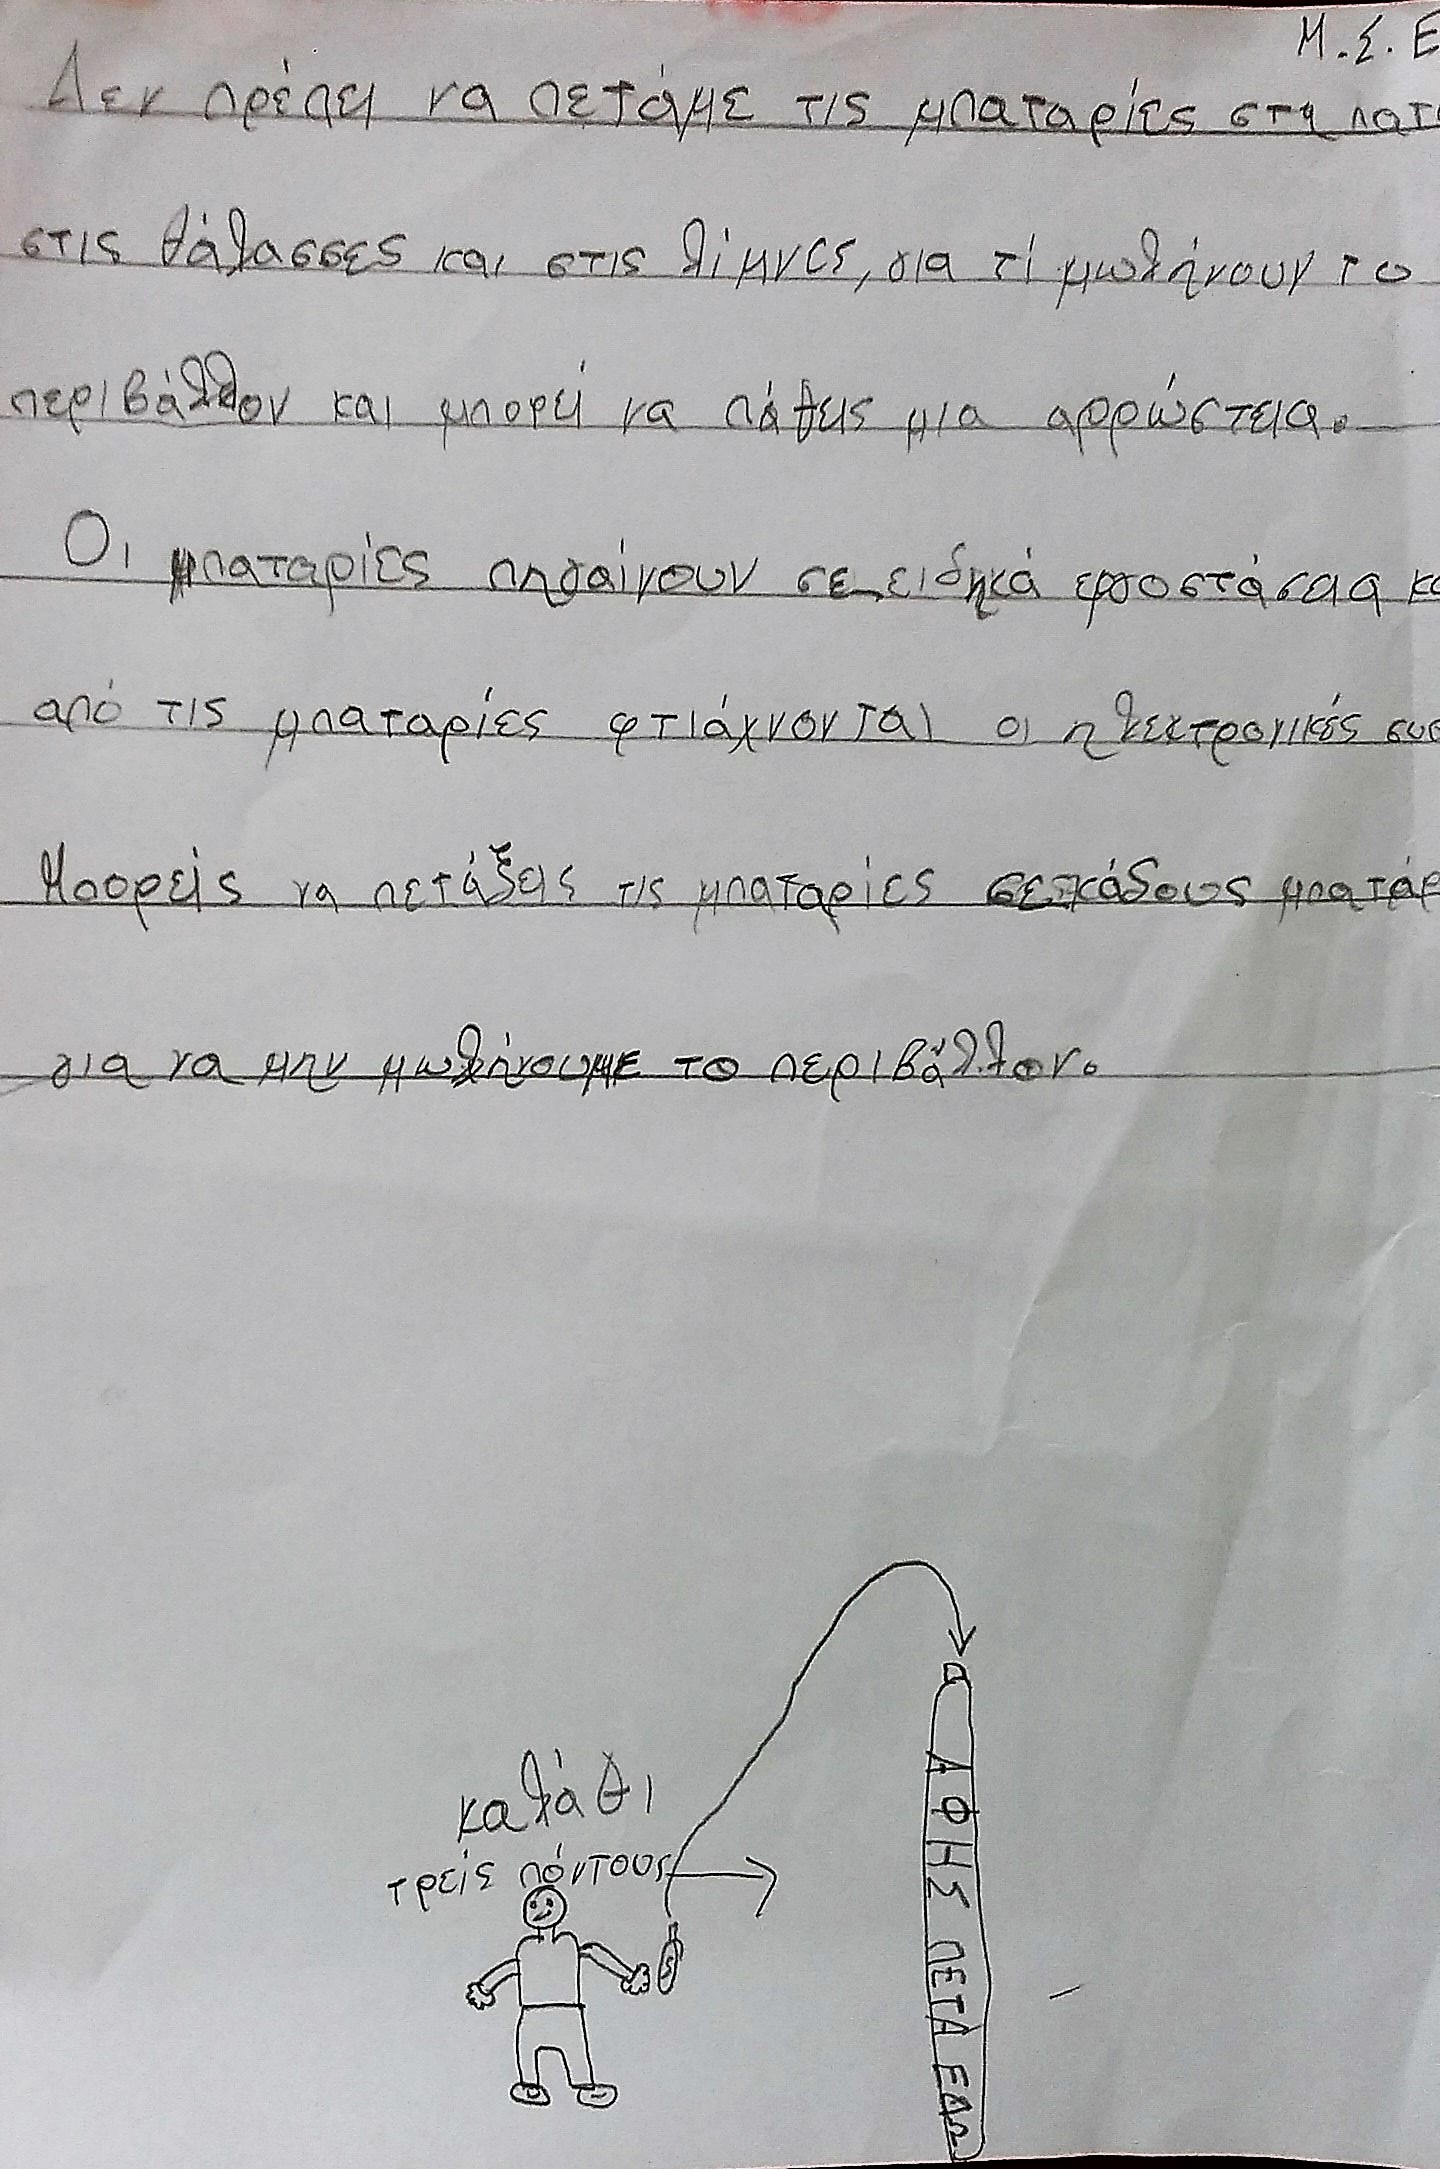 Μ.Σ.Ε
Δεν πρέπει να πετάμε τις μπαταρίες στη πατ
στις θάλασσες και στις λίμνες, για τί μωλήνουν το
περιβάλλον και μπορεί να πάθεις μια αρρώστεια.
Οι μπαταρίες πηγαίνουν σε ειδηκά εργοστάσια κα
από τις μπαταρίες φτιάχνονται οι ηλεκτρονικές συσ
Μπορείς να πετάξεις τις μπαταρίες σε κάδους μπαταρ
για να μην μωλήνουμε το περιβάλλον.
καλάθι
τρείς πόντους
ΑΦΗΣ ΠΕΤΑ ΕΔΩ